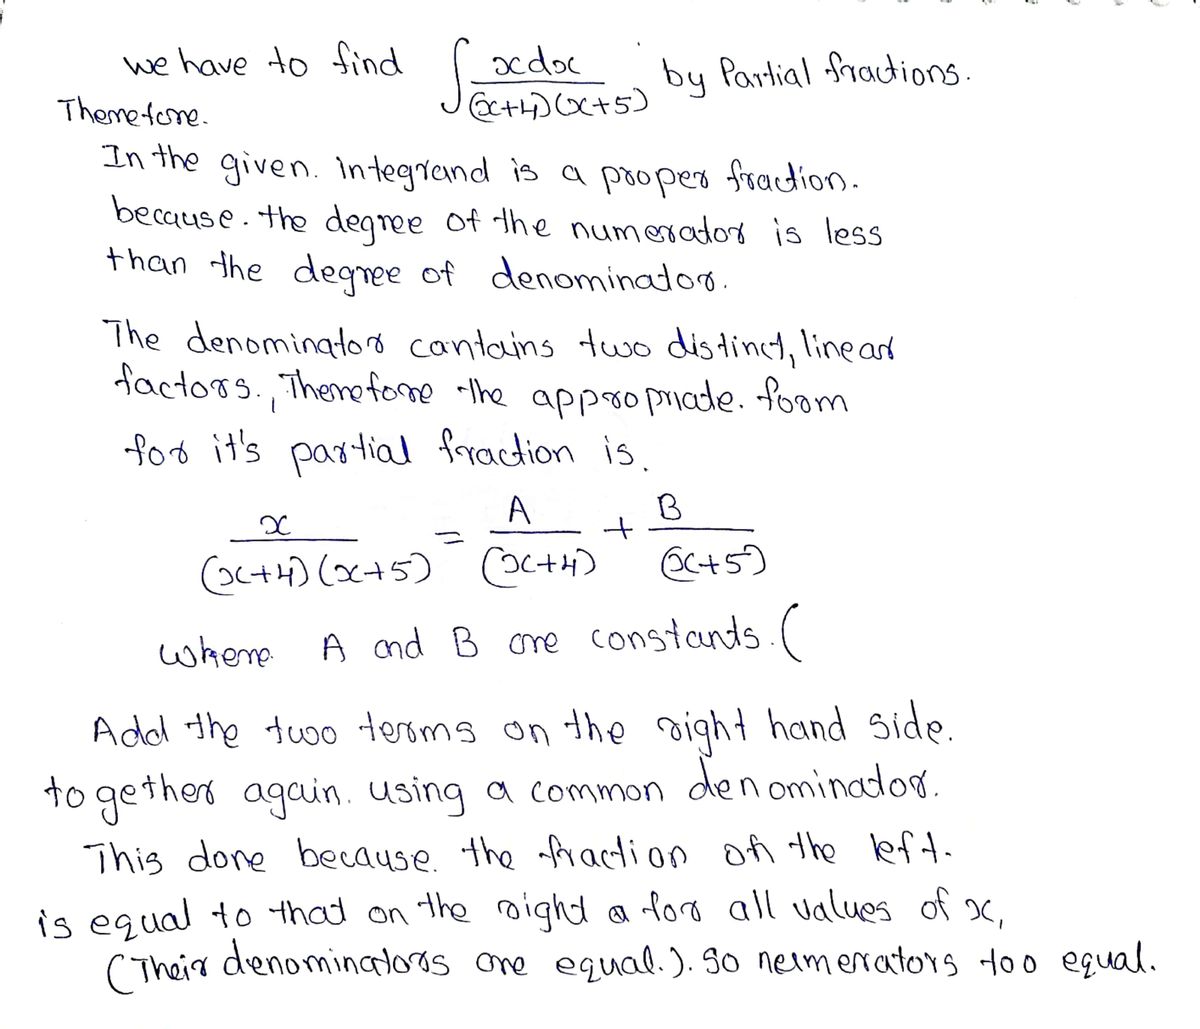 we have to find ∫ xdx / (x+4)(x+5) by Partial fractions.
Therefore.
In the given. integrand is a proper fraction.
because. the degree of the numerator is less
than the degree of denominator.
The denominator contains two distinct, linear
factors., Therefore the appropriate. form
for it's partial fraction is.
x / (x+4)(x+5) = A / (x+4) + B / (x+5)
where. A and B are constants. (
Add the two terms on the right hand side.
together again. using a common denominator.
This done because. the fraction on the left.
is equal to that on the right a for all values of x,
(Their denominators are equal.). So numerators too equal.